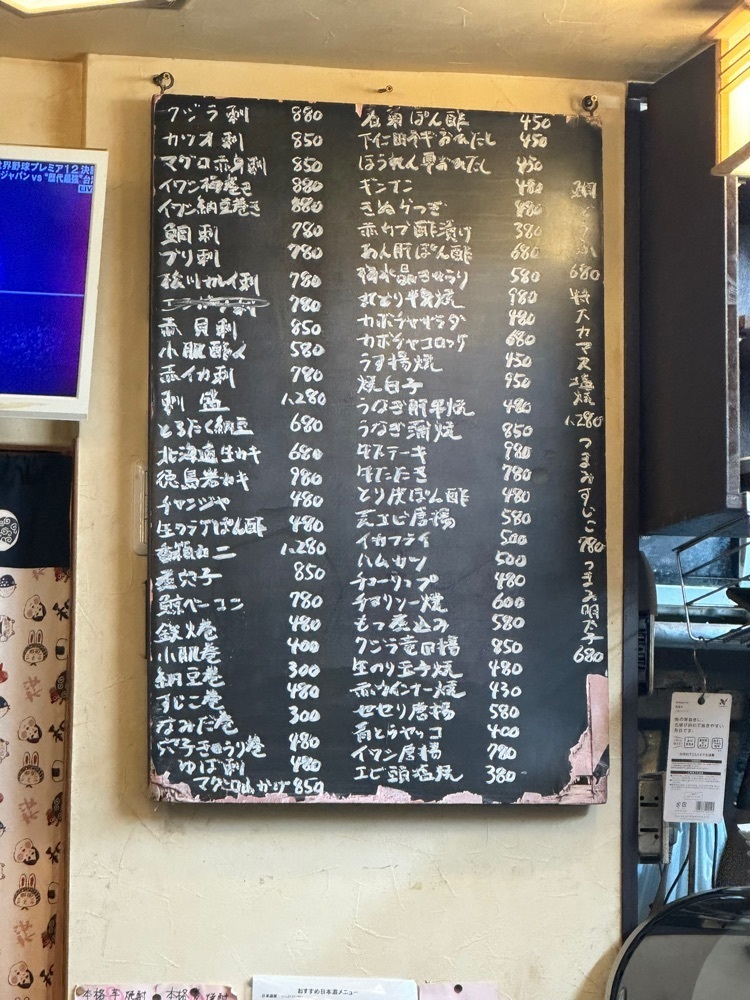 クジラ刺 880
カツオ刺 850
マグロ赤身刺 850
イワシ梅巻き 880
イワシ納豆巻き 880
鯛刺 780
ブリ刺 780
カレイ刺 780
780
赤貝刺 850
小肌酢〆 580
赤イカ刺 780
刺盛 1,280
とろたく納豆 680
北海道生カキ 680
徳島岩ガキ 980
チャンジャ 480
生クラゲぽん酢 480
1,280
煮穴子 850
鯨ベーコン 780
鉄火巻 480
小肌巻 400
納豆巻 300
すじこ巻 480
なみだ巻 300
穴子きゅうり巻 480
ゆば刺 480
マグロ山かけ 850
ぽん酢 450
下仁田ネギおひたし 450
ほうれん草おひたし 450
ギンナン 480
きぬかつぎ 480
赤カブ酢漬け 380
あん肝ぽん酢 680
きゅうり 580
980
カボチャサラダ 480
カボチャコロッケ 680
うす揚焼 450
焼白子 950
うなぎ肝串焼 480
うなぎ蒲焼 850
牛ステーキ 980
牛たたき 780
とり皮ぽん酢 480
芝エビ唐揚 580
イカフライ 500
ハムカツ 500
チューリップ 480
チョリソー焼 600
もつ煮込み 580
クジラ竜田揚 850
生のり玉子焼 480
赤ウインナー焼 430
セセリ唐揚 580
青とうヤッコ 400
イワシ唐揚 780
エビ頭塩焼 380
鯛 680
特大カマ塩焼 1,280
つまみすじこ 780
つまみ明太子 680
世界野球プレミア12 決
ジャパン vs "歴代最強"台
LIV
本格芋焼酎
本格
焼酎
おすすめ日本酒メニュー